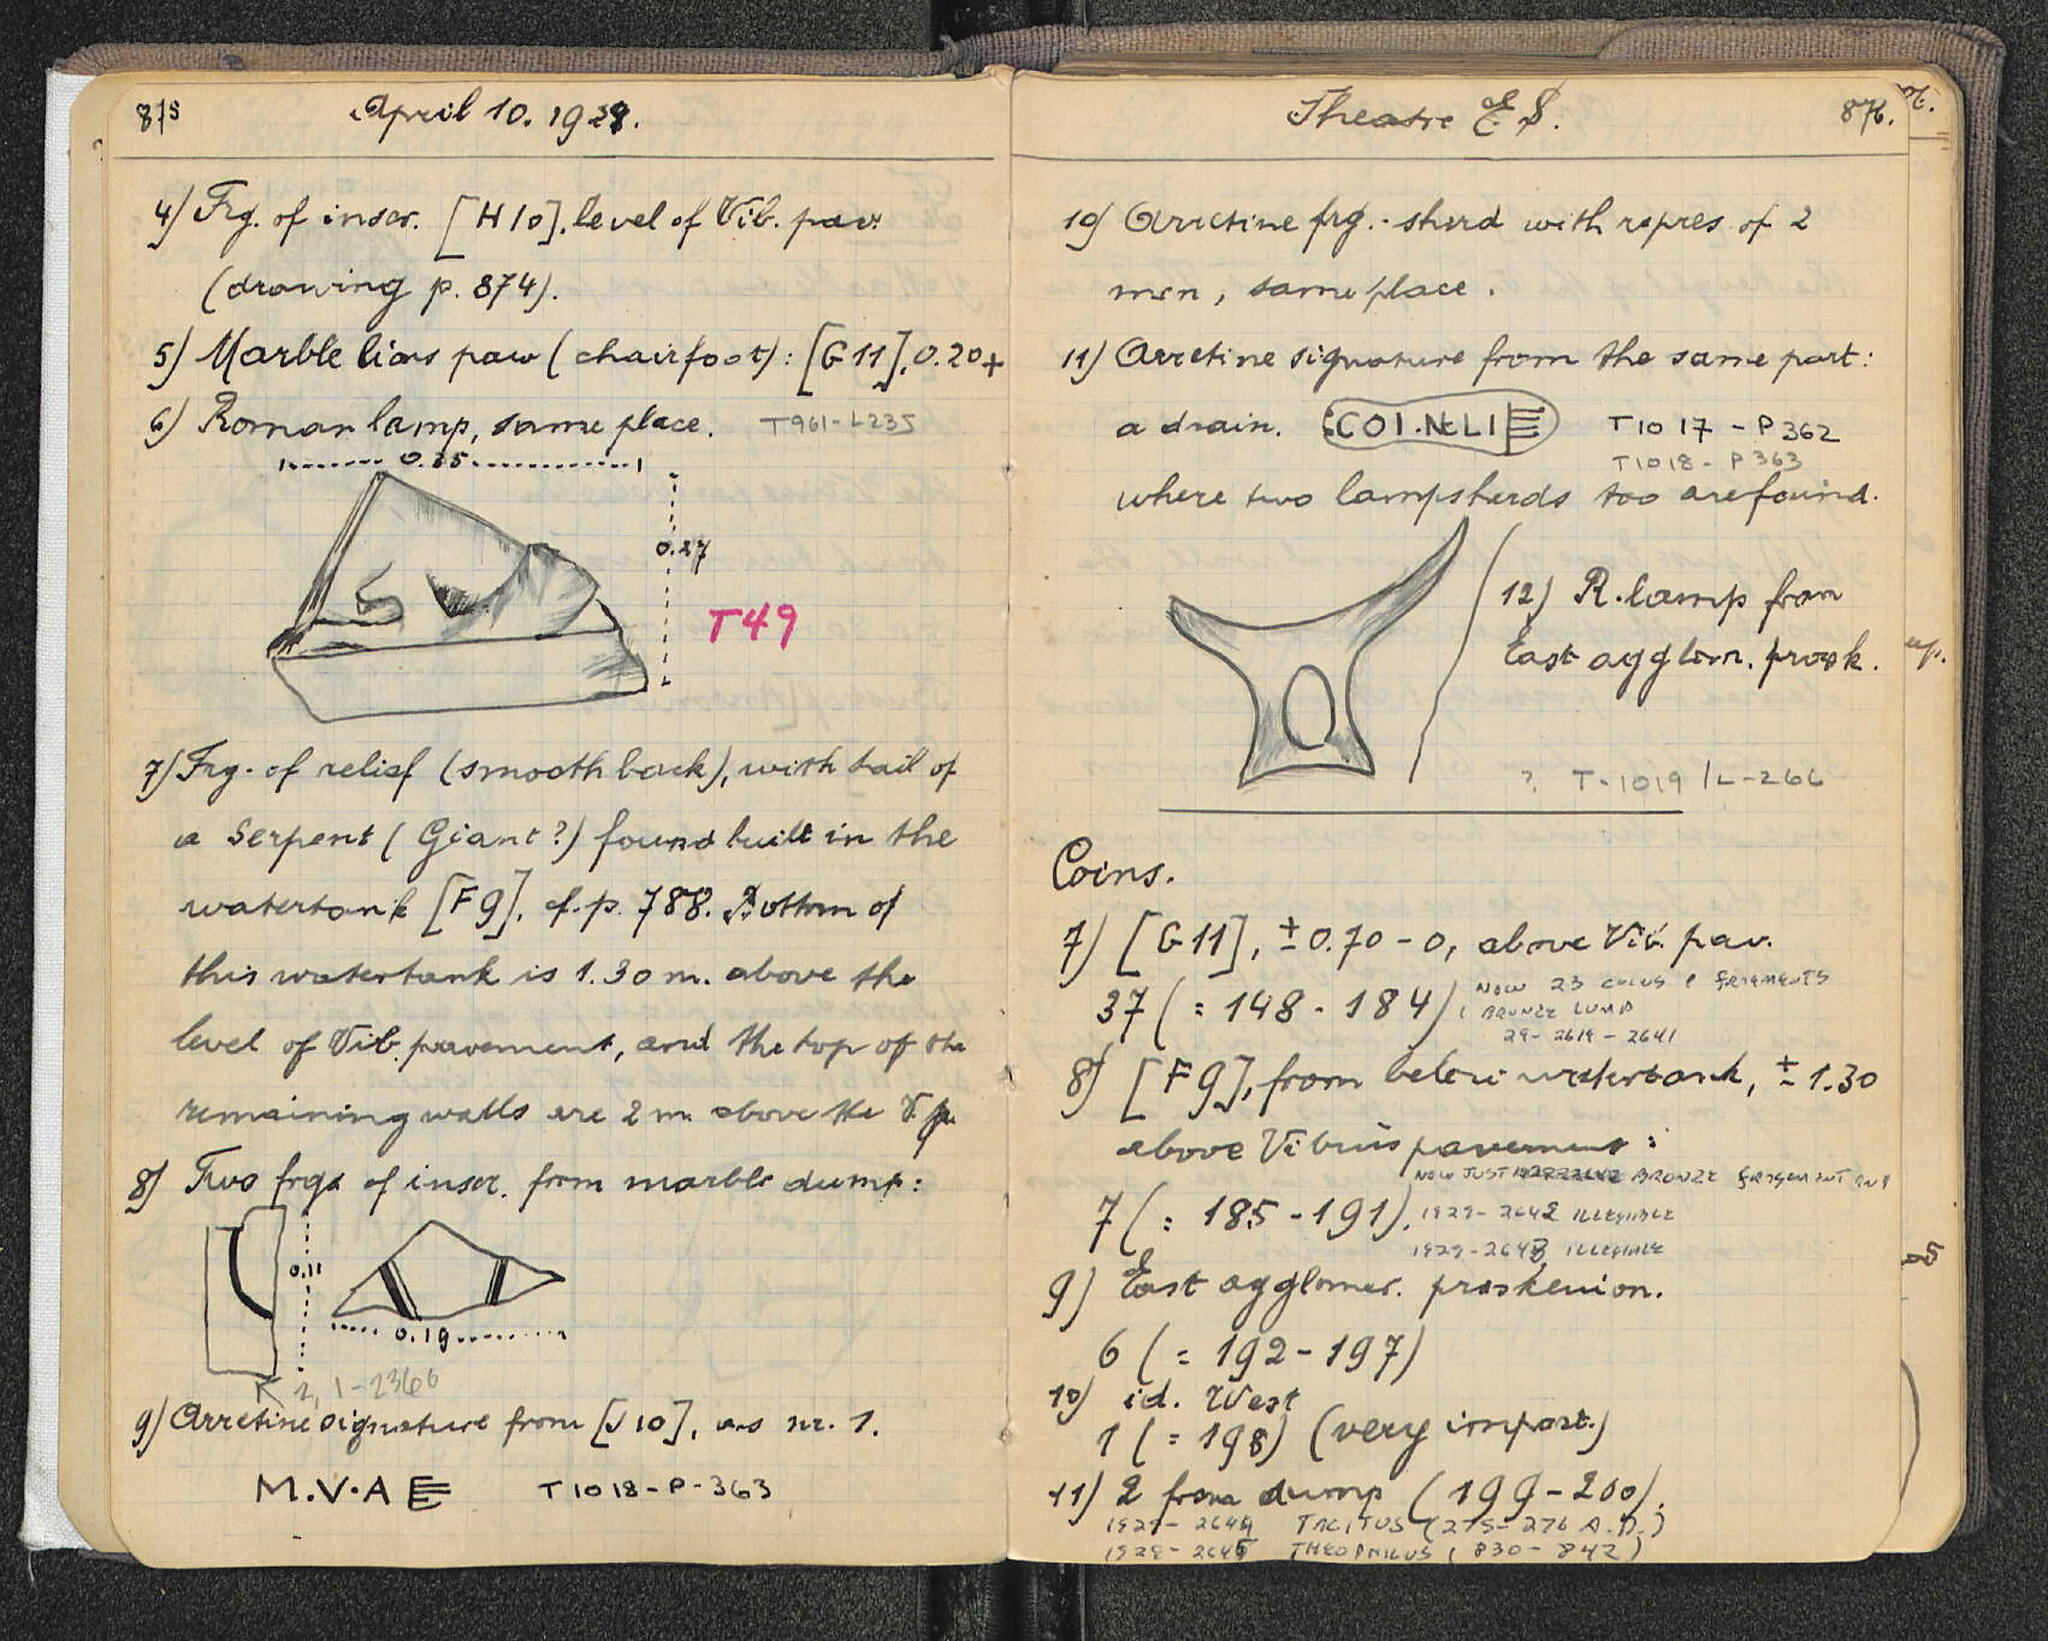 875
April 10. 1929.
4) Frg. of inscr. [H10], level of Vib. pav.
(drawing p. 874).
5) Marble lions paw (chairfoot): [G11], 0.20+
6) Roman lamp, same place. T961-L235
0.35
0.27
T49
7) Frg. of relief (smooth back), with tail of
a Serpent (Giant?) found built in the
watertank [F9], cf. p. 788. Bottom of
this watertank is 1.30 m. above the
level of Vib. pavement, and the top of the
remaining walls are 2 m. above the V. p.
8) Two frgs of inscr. from marble dump:
0.11
0.19
1-2366
9) Arretine signature from [J10], as nr. 1.
M.V.A T1018-P-363
Theatre E S.
876.
10) Arretine frg. - sherd with repres of 2
men, same place.
11) Arretine signature from the same part:
a drain. COI.N.LI T1017-P362
T1018-P363
where two lampsherds too are found.
12) R. lamp from
East agglom. prosk.
? T-1019/L-266
Coins.
7) [G11], ±0.70-0, above Vib. pav.
37 (= 148-184) NOW 23 COINS & FRAGMENTS
1 BRONZE LUMP
29-2619-2641
8) [F9], from below watertank, ±1.30
above Vibius pavement:
NOW JUST BRONZE FRAGMENT AND
7 (= 185-191). 1929-2642 ILLEGIBLE
1929-2643 ILLEGIBLE
9) East agglomer. proskenion.
6 (= 192-197)
10) id. West
1 (= 198) (very import.)
11) 2 from dump (199-200).
1929-2644 TACITUS (275-276 A.D.)
1929-2645 THEOPHILUS (830-842)